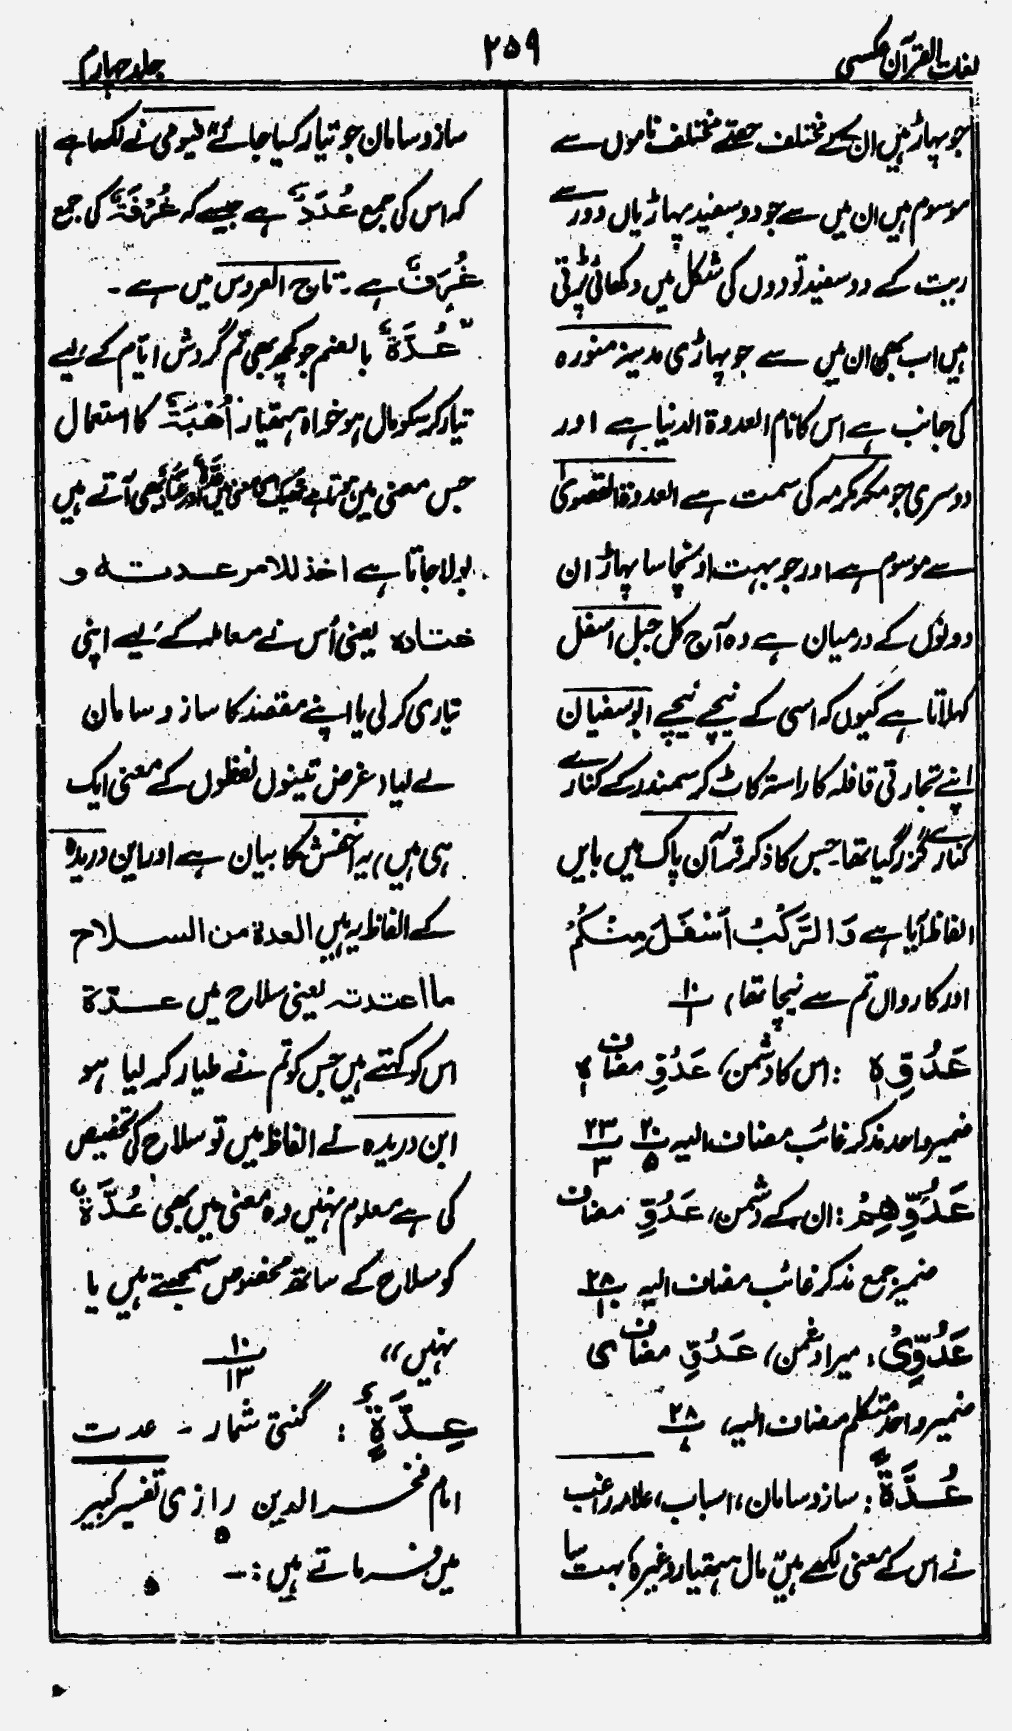 لغات القرآن عکسی
۲۵۹
جلد چہارم
جو پہاڑ ہیں ان کے مختلف حصّے مختلف ناموں سے
موسوم ہیں ان میں سے جو دو سفید پہاڑیاں دور سے
ریت کے دو سفید تودوں کی شکل میں دکھائی پڑتی
ہیں اب بھی ان میں سے جو پہاڑی مدینہ منورہ
کی جانب ہے اس کا نام العدوۃ الدنیا ہے اور
دوسری جو مکہ مکرمہ کی سمت ہے العدوۃ القصویٰ
سے موسوم ہے اور جو بہت اونچا سا پہاڑ ان
دونوں کے درمیان ہے وہ آج کل جبل اسفل
کہلاتا ہے کیوں کہ اسی کے نیچے نیچے ابو سفیان
اپنے تجارتی قافلہ کا راستہ کاٹ کر سمندر کے کنارے
کنارے گزر گیا تھا۔ جس کا ذکر قرآن پاک میں بایں
الفاظ آیا ہے وَالرَّکْبُ اَسْفَلَ مِنْکُمْ
اور کارواں تم سے نیچا تھا، ۱۰/۱
عَدُوِّہٖ: اس کا دشمن، عَدُوِّ مضاف ہٖ
ضمیر واحد مذکر غائب مضاف الیہ ۲۰/۵ ۲۳/۳
عَدُوِّھِمْ: ان کے دشمن، عَدُوِّ مضاف
ضمیر جمع مذکر غائب مضاف الیہ ۲۸/۱۰
عَدُوِّیْ: میرا دشمن، عَدُوِّ مضاف ی
ضمیر واحد متکلم مضاف الیہ، ۲۸
عُدَّۃً: ساز و سامان، اسباب، علامہ راغب
نے اس کے معنی لکھے ہیں مال ہتھیار وغیرہ کا بہت سا
ساز و سامان جو تیار کیا جائے فیومی نے لکھا ہے
کہ اس کی جمع عُدَدٌ ہے جیسے کہ غُرْفَۃٌ کی جمع
غُرَفٌ ہے۔ تاج العروس میں ہے۔
"عُدَّۃٌ بالضم جو کچھ بھی تم گردش ایّام کے لیے
تیار کر سکو مال ہو خواہ ہتھیار اُھْبَۃٌ کا استعمال
جس معنی میں ہوتا ہے ٹھیک اسی معنی میں عُدَّۃٌ اور عَتَادٌ بھی آتے ہیں
بولا جاتا ہے اخذ للامر عدتہ و
عتادہ یعنی اُس نے معاملہ کے لیے اپنی
تیاری کر لی یا اپنے مقصد کا ساز و سامان
لے لیا، غرض تینوں لفظوں کے معنی ایک
ہی ہیں، یہ اخفش کا بیان ہے اور ابن دریدہ
کے الفاظ یہ ہیں العدۃ من السلاح
ما اعتدتہ یعنی سلاح میں عدّۃ
اس کو کہتے ہیں جس کو تم نے طیار کر لیا ہو
ابن دریدہ نے الفاظ میں تو سلاح کی تخصیص
کی ہے معلوم نہیں وہ معنی میں بھی عُدَّۃٌ
کو سلاح کے ساتھ مخصوص سمجھتے ہیں یا
نہیں،، ۱۰/۱۳
عِدَّۃٌ: گنتی شمار۔ عدت
امام فخر الدین رازی تفسیر کبیر
میں فرماتے ہیں:۔